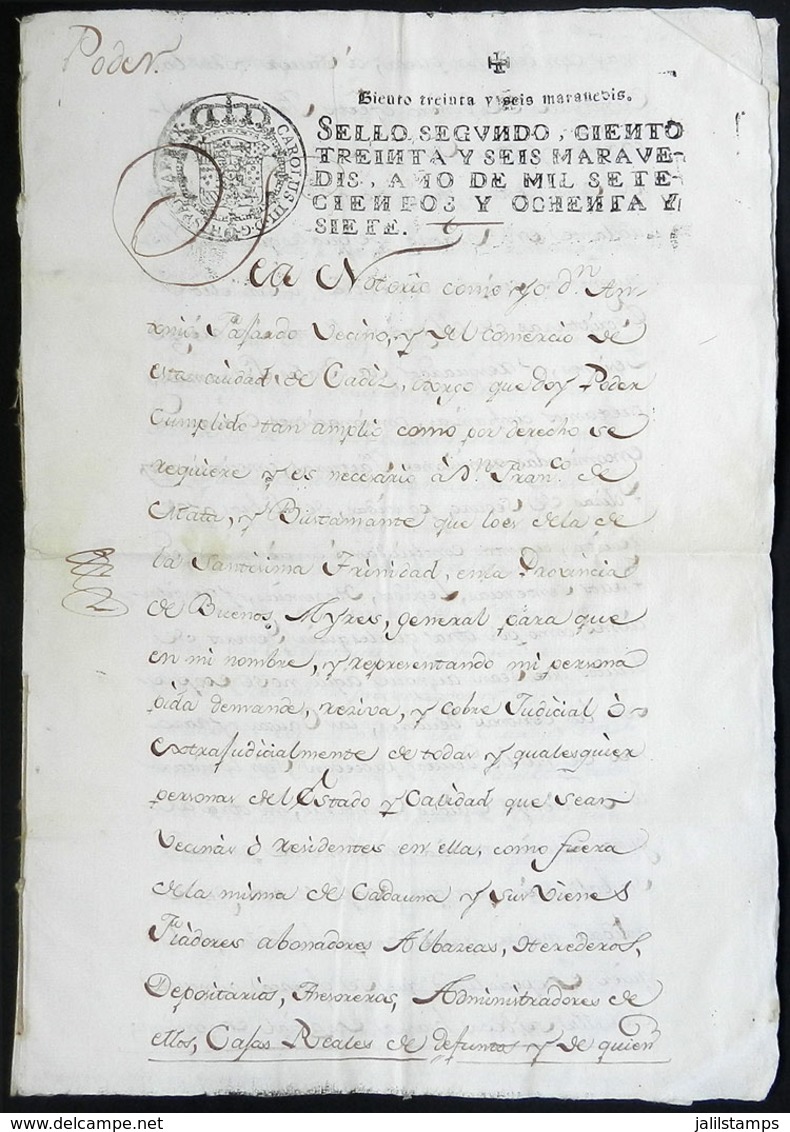 Poder.
Ciento treinta y seis marauedis.
SELLO SEGVNDO, CIENTO
TREINTA Y SEIS MARAVE-
DIS, AÑO DE MIL SETE-
CIENTOS Y OCHENTA Y
SIETE.
CAROLUS III D G HISPANIAR REX
Sea Notorio como yo dn. An-
Pasardo Vecino, y del Comercio de
esta ciudad de Cadiz, otorgo que doy Poder
Cumplido tan amplio como por derecho se
requiere y es necesario à Dn. Franco. de
Mata, y Bustamante que lo es de la de
la Santisima Trinidad, en la Provincia
de Buenos Ayres, general para que
en mi nombre, y representando mi persona
pida demande, reziva, y cobre Judicial ò
extrajudicialmente de todas y qualesquier
personas del Estado y Calidad que sean
Vecinas ò residentes en ella, como fuera
de la misma de Cadauna y sus Vienes
Fiadores abonadores Albazeas, Herederos,
Depositarios, Thesoreros, Administradores de
ellos, Casas Reales de defuntos y de quien
jalilstamps